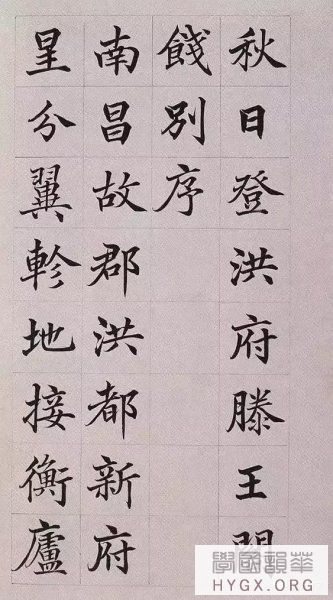 秋日登洪府滕王
餞別序
南昌故郡洪都新府
星分翼軫地接衡廬
學國韻華
HYGX.ORG